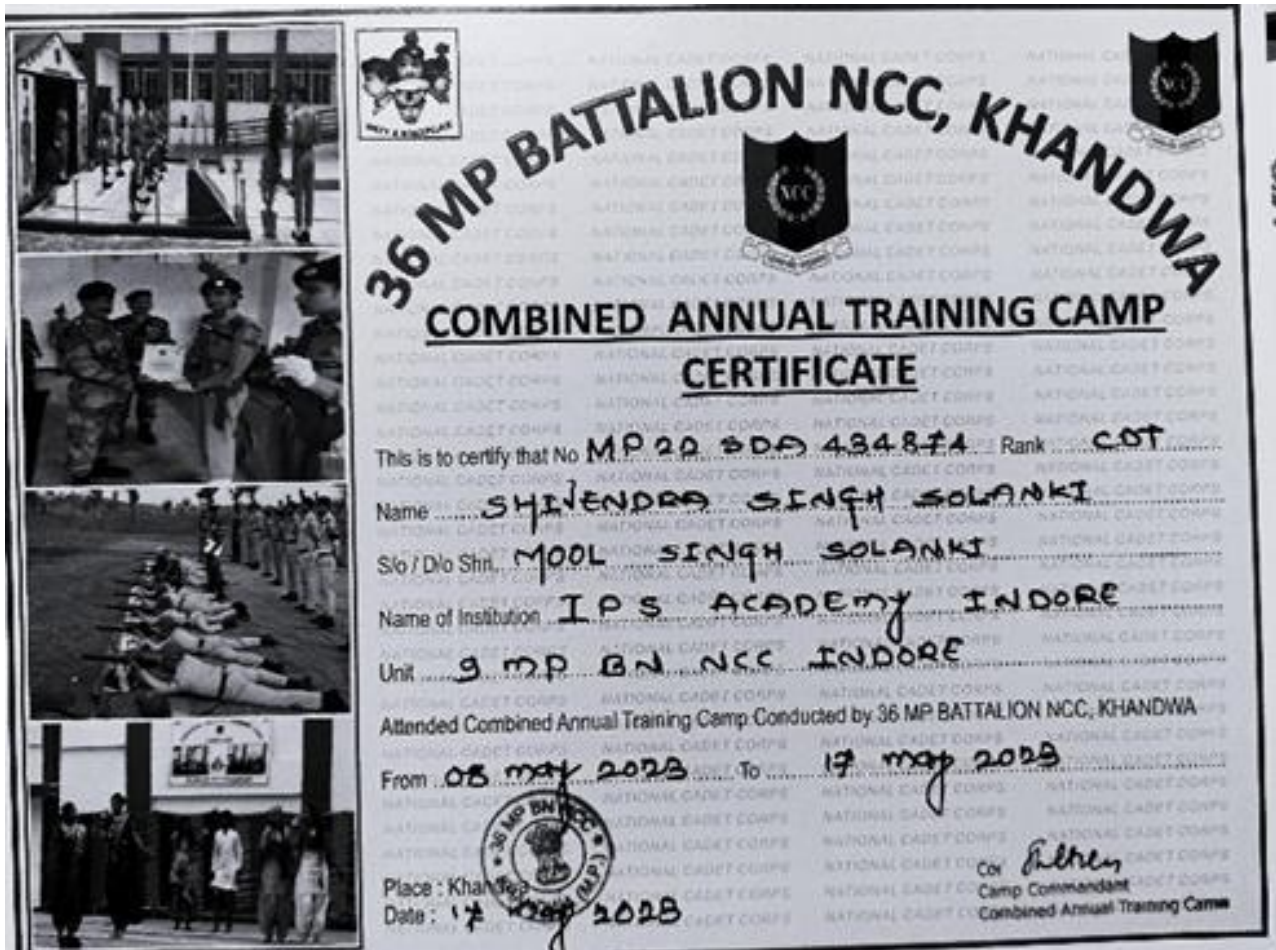 36 MP BATTALION NCC, KHANDWA
NCC
NCC
COMBINED ANNUAL TRAINING CAMP
CERTIFICATE
This is to certify that No MP 22 SDA 434874 Rank CDT
Name SHIVENDRA SINGH SOLANKI
S/o / D/o Shri. MOOL SINGH SOLANKI
Name of Institution IPS ACADEMY INDORE
Unit 9 MP BN NCC INDORE
Attended Combined Annual Training Camp Conducted by 36 MP BATTALION NCC, KHANDWA
From 08 may 2023 To 17 may 2023
36 MP BN NCC
(M.P.)
Place : Khandwa
Date : 17 may 2023
Col
Camp Commandant
Combined Annual Training Camp
NATIONAL CADET CORPS